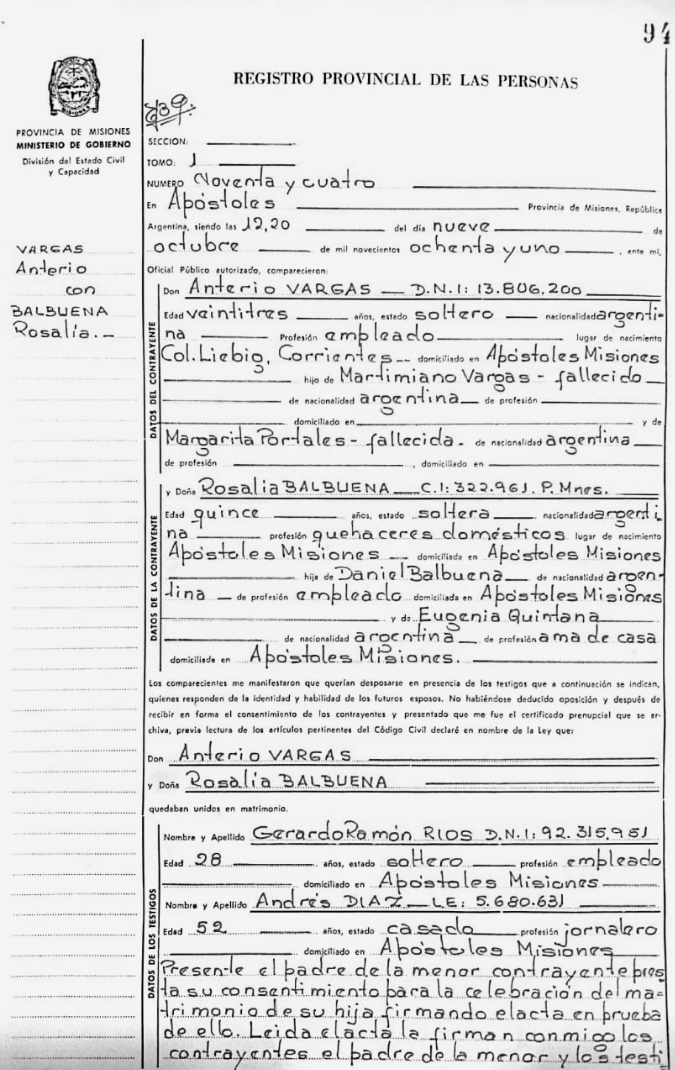 94
REGISTRO PROVINCIAL DE LAS PERSONAS
639:
PROVINCIA DE MISIONES
MINISTERIO DE GOBIERNO
División del Estado Civil
y Capacidad
VARGAS
Anterio
con
BALBUENA
Rosalía.—
SECCION:
TOMO: 1
NUMERO Noventa y cuatro
En Apóstoles Provincia de Misiones, República
Argentina, siendo las 12,20 del día nueve de
octubre de mil novecientos ochenta y uno, ante mí,
Oficial Público autorizado, comparecieron:
DATOS DEL CONTRAYENTE
Don Anterio VARGAS — D.N.I: 13.806.200
Edad veintitres años, estado soltero nacionalidad argenti-
na Profesión empleado lugar de nacimiento
Col. Liebig, Corrientes — domiciliado en Apóstoles Misiones
hijo de Martimiano Vargas - fallecido
de nacionalidad argentina de profesión
domiciliado en y de
Margarita Portales - fallecida - de nacionalidad argentina
de profesión , domiciliado en
DATOS DE LA CONTRAYENTE
y Doña Rosalia BALBUENA C.I: 322.961. P. Mnes.
Edad quince años, estado soltera nacionalidad argenti
na profesión quehaceres domésticos lugar de nacimiento
Apóstoles Misiones domiciliada en Apóstoles Misiones
hija de Daniel Balbuena de nacionalidad argen-
tina de profesión empleado domiciliado en Apóstoles Misiones
y de Eugenia Quintana
de nacionalidad argentina de profesión ama de casa
domiciliada en Apóstoles Misiones.
Los comparecientes me manifestaron que querían desposarse en presencia de los testigos que a continuación se indican,
quienes responden de la identidad y habilidad de los futuros esposos. No habiéndose deducido oposición y después de
recibir en forma el consentimiento de los contrayentes y presentado que me fue el certificado prenupcial que se ar-
chiva, previa lectura de los artículos pertinentes del Código Civil declaré en nombre de la Ley que:
Don Anterio VARGAS
y Doña Rosalía BALBUENA
quedaban unidos en matrimonio.
DATOS DE LOS TESTIGOS
Nombre y Apellido Gerardo Ramón RIOS D.N.I: 92.315.951
Edad 28 años, estado soltero profesión empleado
domiciliado en Apóstoles Misiones
Nombre y Apellido Andrés DIAZ — LE: 5.680.631
Edad 52 años, estado casado profesión jornalero
domiciliado en Apóstoles Misiones
Presente el padre de la menor contrayente pres
ta su consentimiento para la celebración del ma-
trimonio de su hija firmando el acta en prueba
de ello. Leida el acta la firman conmigo los
contrayentes el padre de la menor y los testi